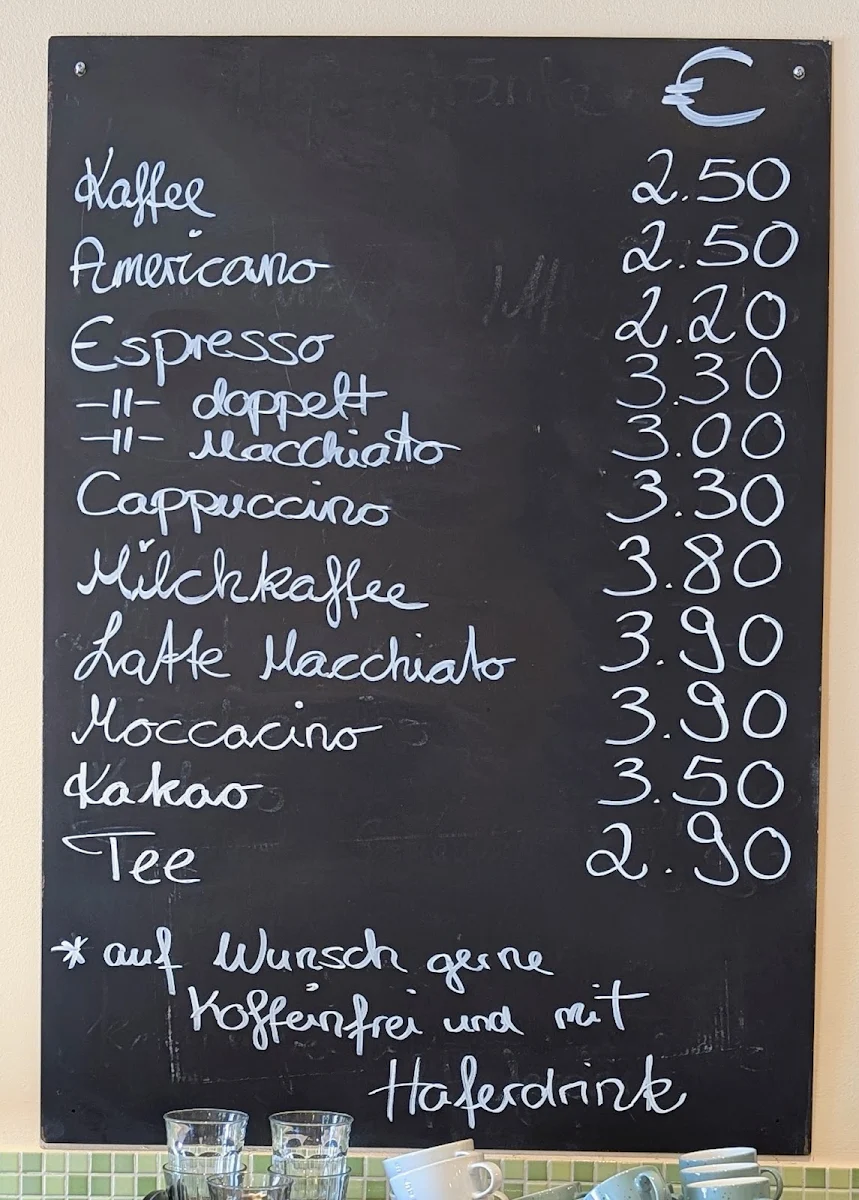 €
Kaffee 2.50
Americano 2.50
Espresso 2.20
-||- doppelt 3.30
-||- Macchiato 3.00
Cappuccino 3.30
Milchkaffee 3.80
Latte Macchiato 3.90
Moccacino 3.90
Kakao 3.50
Tee 2.90
* auf Wunsch gerne
Koffeinfrei und mit
Haferdrink